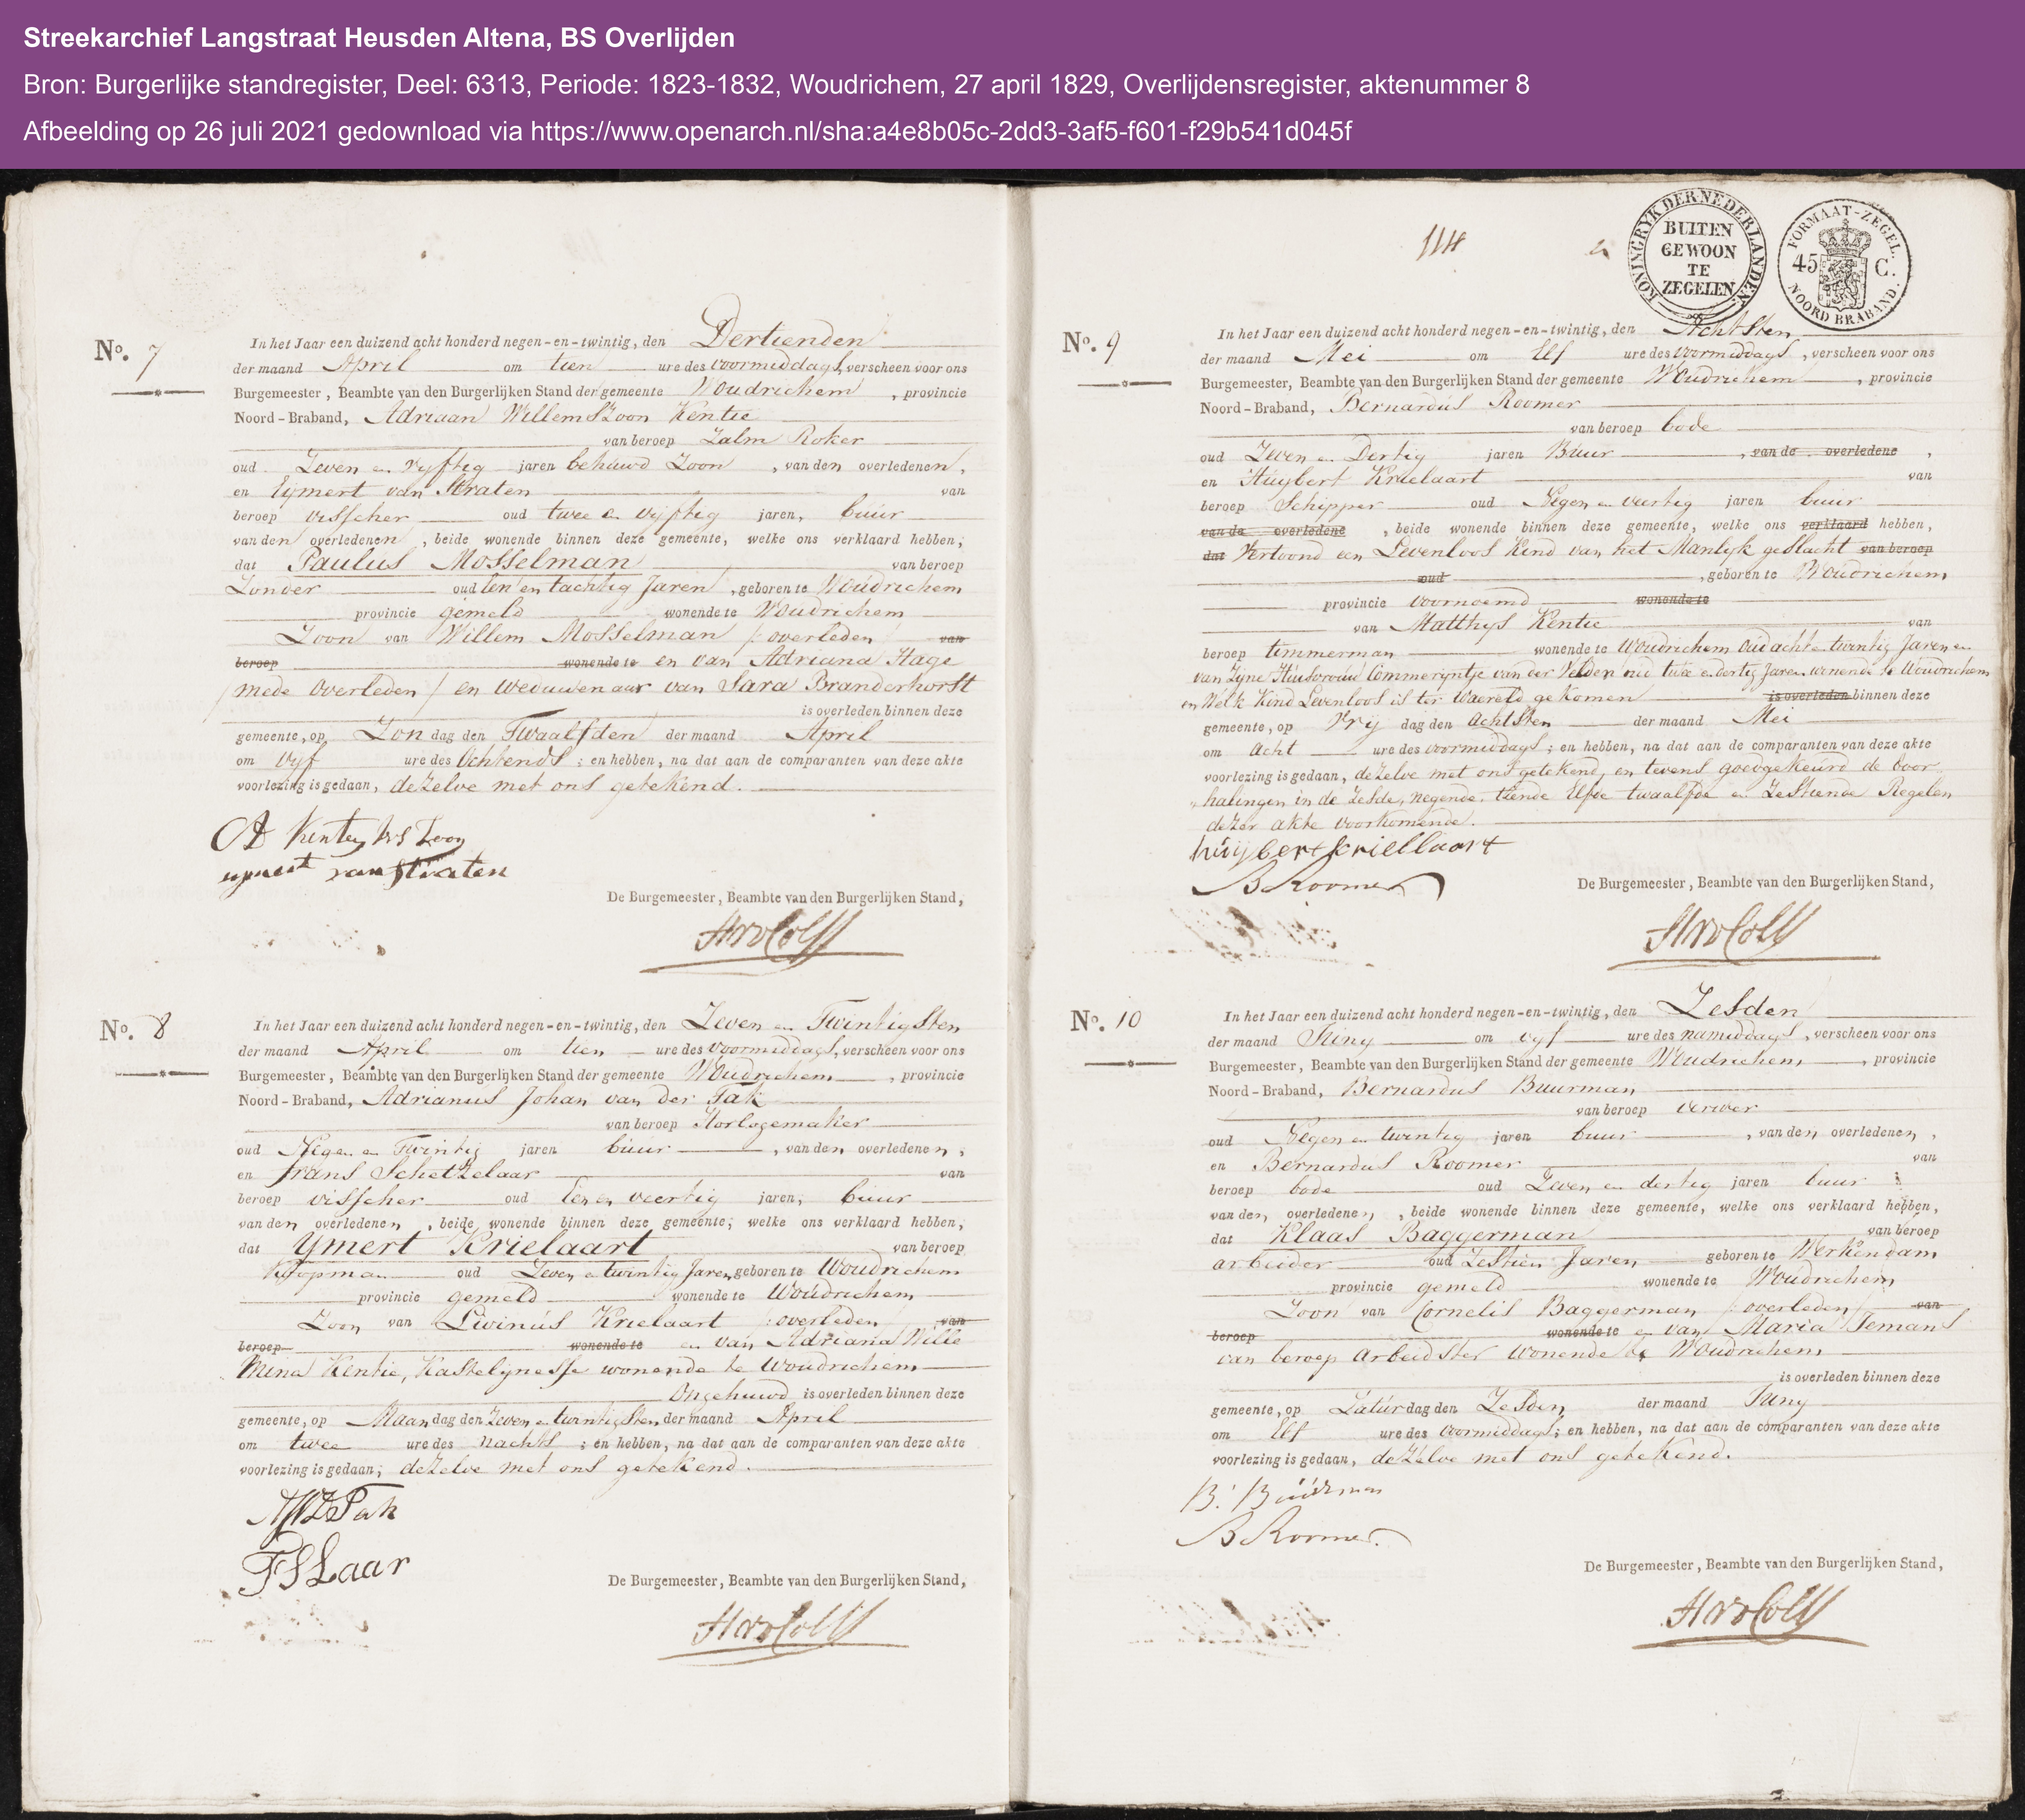 Streekarchief Langstraat Heusden Altena, BS Overlijden
Bron: Burgerlijke standregister, Deel: 6313, Periode: 1823-1832, Woudrichem, 27 april 1829, Overlijdensregister, aktenummer 8
Afbeelding op 26 juli 2021 gedownload via https://www.openarch.nl/sha:a4e8b05c-2dd3-3af5-f601-f29b541d045f
No. 7
In het Jaar een duizend acht honderd negen-en-twintig, den Dertienden
der maand April om tien ure des voormiddags, verscheen voor ons
Burgemeester, Beambte van den Burgerlijken Stand der gemeente Woudrichem, provincie
Noord-Braband, Adriaan WillemsZoon Kentie
van beroep Zalm Roker
oud Zeven en Vyftig jaren behuwd Zoon, van den overledenen,
en Eijmert van Straten van
beroep visscher oud twee en vyftig jaren, buur
van den overledenen, beide wonende binnen deze gemeente, welke ons verklaard hebben,
dat Paulus Mosselman van beroep
Zonder oud Een en tachtig Jaren, geboren te Woudrichem
provincie gemeld wonende te Woudrichem
Zoon van Willem Mosselman /: overleden van
beroep wonende te en van Adriana Hage
/ mede overleden / en weduwenaar van Sara Branderhorst
is overleden binnen deze
gemeente, op Zon dag den Twaalfden der maand April
om vyf ure des Ochtends; en hebben, na dat aan de comparanten van deze akte
voorlezing is gedaan, dezelve met ons getekend.
A Kentey Ws Zoon
eymert van straten
De Burgemeester, Beambte van den Burgerlijken Stand,
No. 8
In het Jaar een duizend acht honderd negen-en-twintig, den Zeven en Twintigsten
der maand April om tien ure des voormiddags, verscheen voor ons
Burgemeester, Beambte van den Burgerlijken Stand der gemeente Woudrichem, provincie
Noord-Braband, Adrianus Johan van der Tak
van beroep Horlogemaker
oud Negen en Twintig jaren buur, van den overledenen,
en frans Schetzelaar van
beroep visscher oud Een en veertig jaren, buur
van den overledenen, beide wonende binnen deze gemeente; welke ons verklaard hebben,
dat Ymert Krielaart van beroep
Koopman oud Zeven en twintig Jaren geboren te Woudrichem
provincie gemeld wonende te Woudrichem
Zoon van Livinus Krielaart :overleden van
beroep wonende te en van Adriana Wille
Mina Kentie, Kastelynesse wonende te Woudrichem
Ongehuwd is overleden binnen deze
gemeente, op Maan dag den Zeven en twintigsten der maand April
om twee ure des nachts; en hebben, na dat aan de comparanten van deze akte
voorlezing is gedaan; dezelve met ons getekend.
AJVD Tak
FSLaar
De Burgemeester, Beambte van den Burgerlijken Stand,
114
KONINGRYK DER NEDERLANDEN.
BUITEN
GEWOON
TE
ZEGELEN
FORMAAT-ZEGEL.
45 C.
NOORD BRABAND.
No. 9
In het Jaar een duizend acht honderd negen-en-twintig, den Achtsten
der maand Mei om Elf ure des voormiddags, verscheen voor ons
Burgemeester, Beambte van den Burgerlijken Stand der gemeente Woudrichem, provincie
Noord-Braband, Bernardus Roomer
van beroep bode
oud Zeven en Dertig jaren Buur, van de overledene,
en Huybert Krielaart van
beroep Schipper oud Negen en veertig jaren buur
van de overledene, beide wonende binnen deze gemeente, welke ons verklaard hebben,
dat Vertoond een Levenloos Kind van het Manlyk geslacht van beroep
oud, geboren te Woudrichem
provincie voornoemd wonende te
van Matthys Kentie van
beroep timmerman wonende te Woudrichem oud acht en twintig Jaren en
van Zyne Huisvrouw Commeryntje van der Velden oud twee en dertig Jaren wonende te Woudrichem
en Welk Kind Levenloos is ter Waereld gekomen is overleden binnen deze
gemeente, op Vrij dag den Achtsten der maand Mei
om Acht ure des voormiddags; en hebben, na dat aan de comparanten van deze akte
voorlezing is gedaan, dezelve met ons getekend, en tevens goedgekeurd de door
halingen in de Zesde, negende, tiende Elfde twaalfde en Zestiende Regelen
dezer akte voorkomende.
huijbert kriellaart
B Roomer
De Burgemeester, Beambte van den Burgerlijken Stand,
No. 10
In het Jaar een duizend acht honderd negen-en-twintig, den Zesden
der maand Juny om vyf ure des namiddags, verscheen voor ons
Burgemeester, Beambte van den Burgerlijken Stand der gemeente Woudrichem, provincie
Noord-Braband, Bernardus Buurman
van beroep verwer
oud Negen en twintig jaren buur, van den overledenen,
en Bernardus Roomer van
beroep bode oud Zeven en dertig jaren buur
van den overledenen, beide wonende binnen deze gemeente, welke ons verklaard hebben,
dat Klaas Baggerman van beroep
arbeider oud Zestien Jaren geboren te Werkendam
provincie gemeld wonende te Woudrichem
Zoon van Cornelis Baggerman /:overleden/ van
beroep wonende te en van Maria Temans
van beroep arbeidster wonende te Woudrichem
is overleden binnen deze
gemeente, op Satur dag den Zesden der maand Juny
om Elf ure des voormiddags; en hebben, na dat aan de comparanten van deze akte
voorlezing is gedaan, dezelve met ons getekend.
B: Buurman
B Roomer.
De Burgemeester, Beambte van den Burgerlijken Stand,